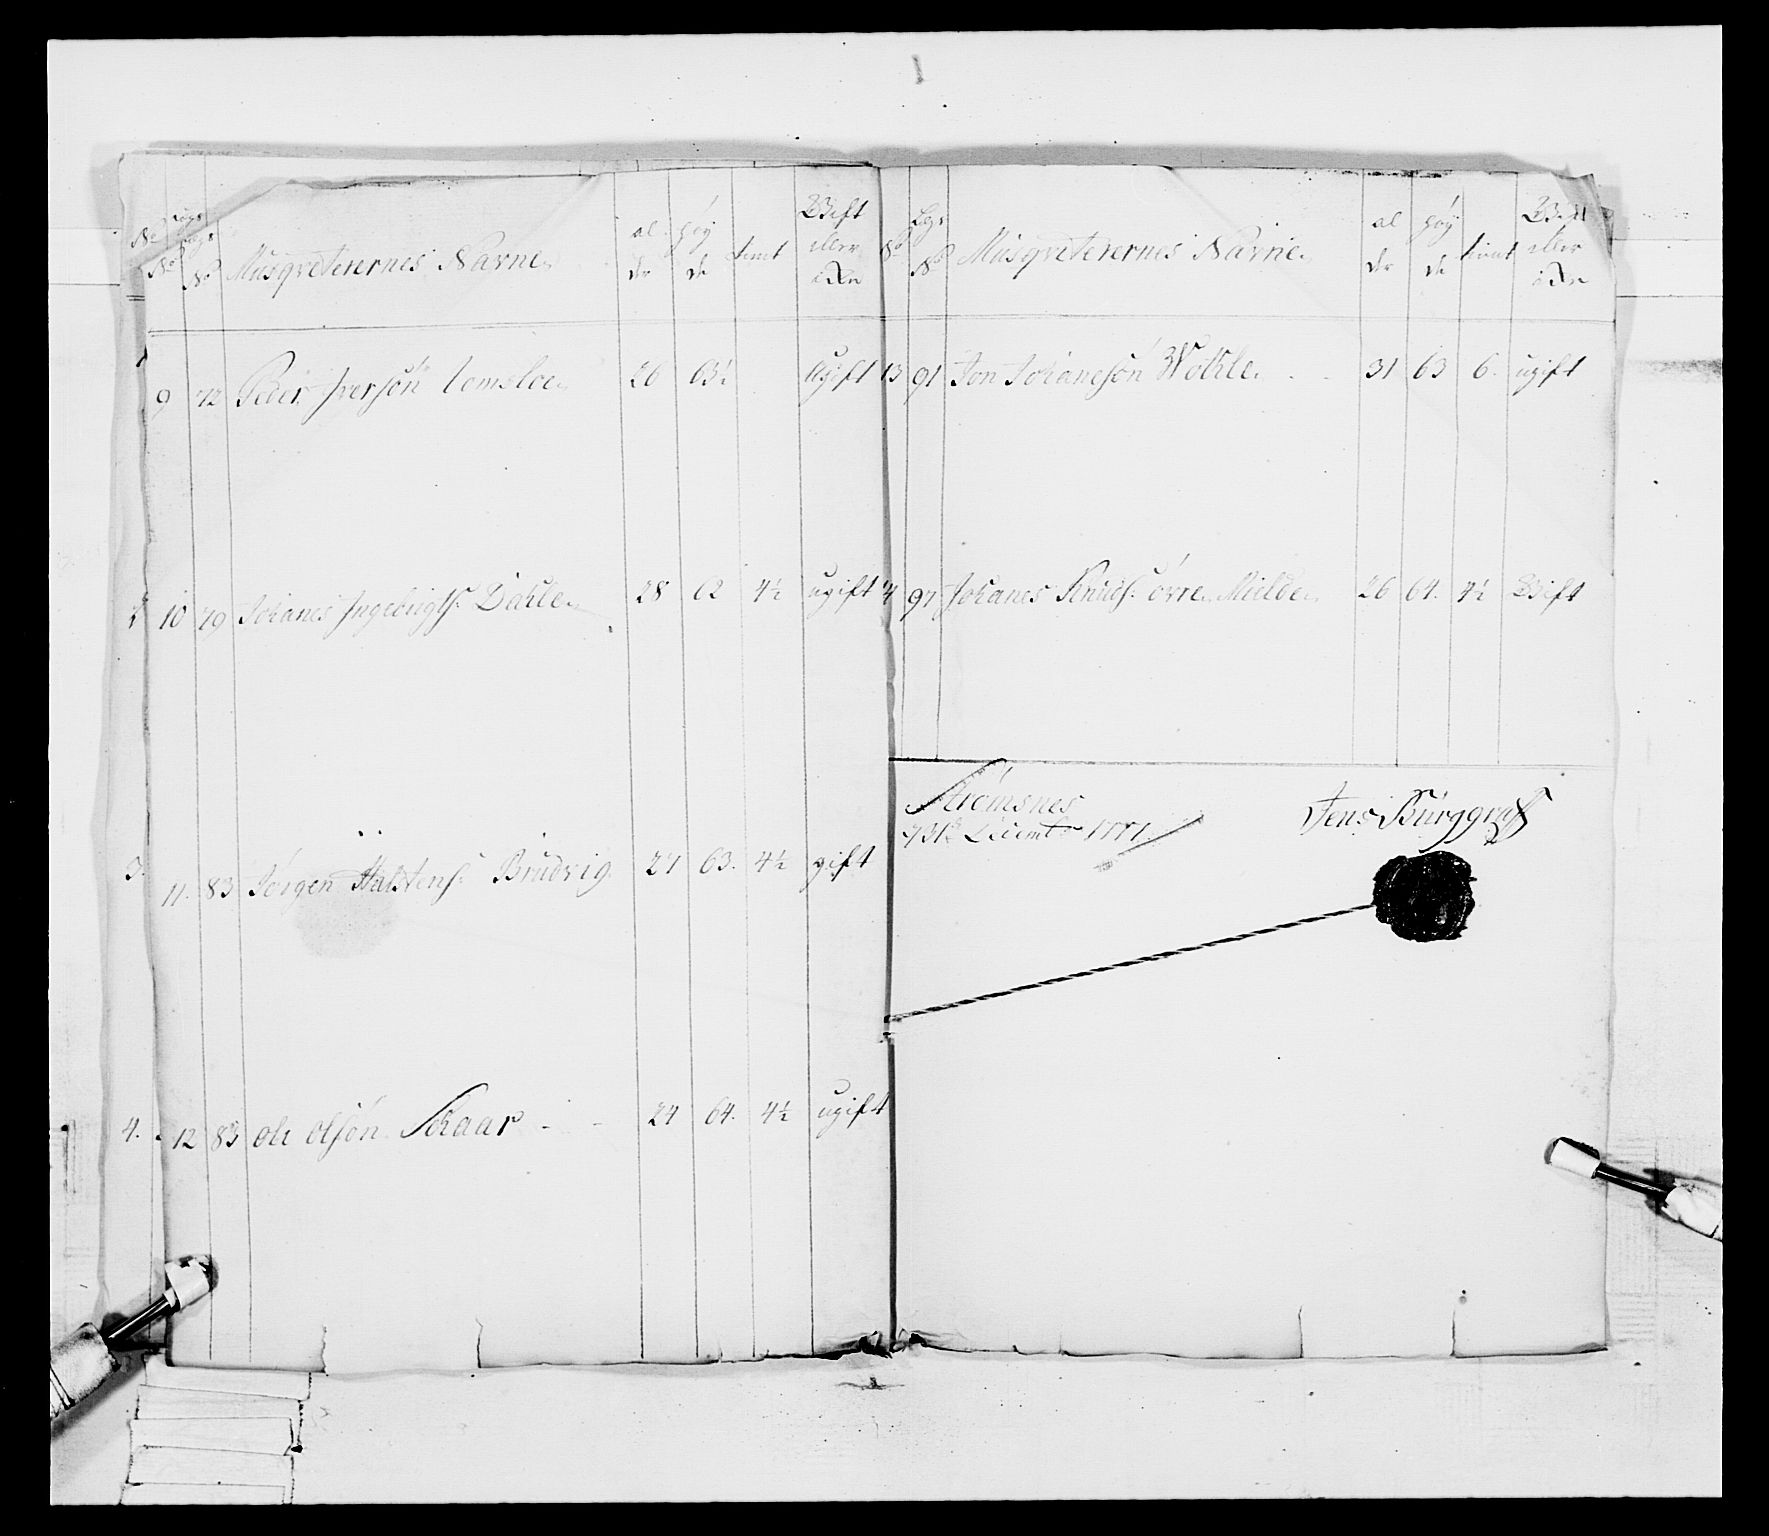 No Legs No Musqveterernes Navne al der høy de tient Gift eller ickn
9 72 Peder Iversøn Tomsloe 26 63½ Ugift
10 79 Johanes Ingebrigts: Dahle 28 62 4½ ugift
11. 83 Jørgen Halstens: Brudvig 27 63. 4½ gift
12 83 Ole Olsøn Skaar - - 24 64. 4½ ugift
2
3.
4.
No Legs No Musqveterernes Navne al der høy de tient Gift eller ickn
13 91 Jon Johanesøn Wohle - - 31 63 6. ugift
14 97 Johanes Knuds: øvre Mielde 26 64. 4½ Gift
Strømsnes
d 31te Decembr 1771
Jens Burggraff